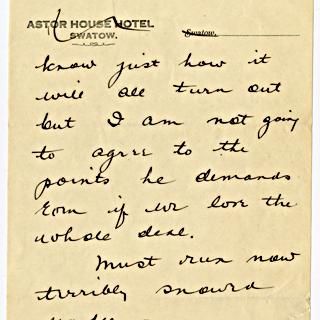 ASTOR HOUSE HOTEL
SWATOW.
Swatow,
know just how it
will all turn out
but I am not going
to agree to the
points he demands
even if we lose the
whole deal.
Must run now
terribly snowed